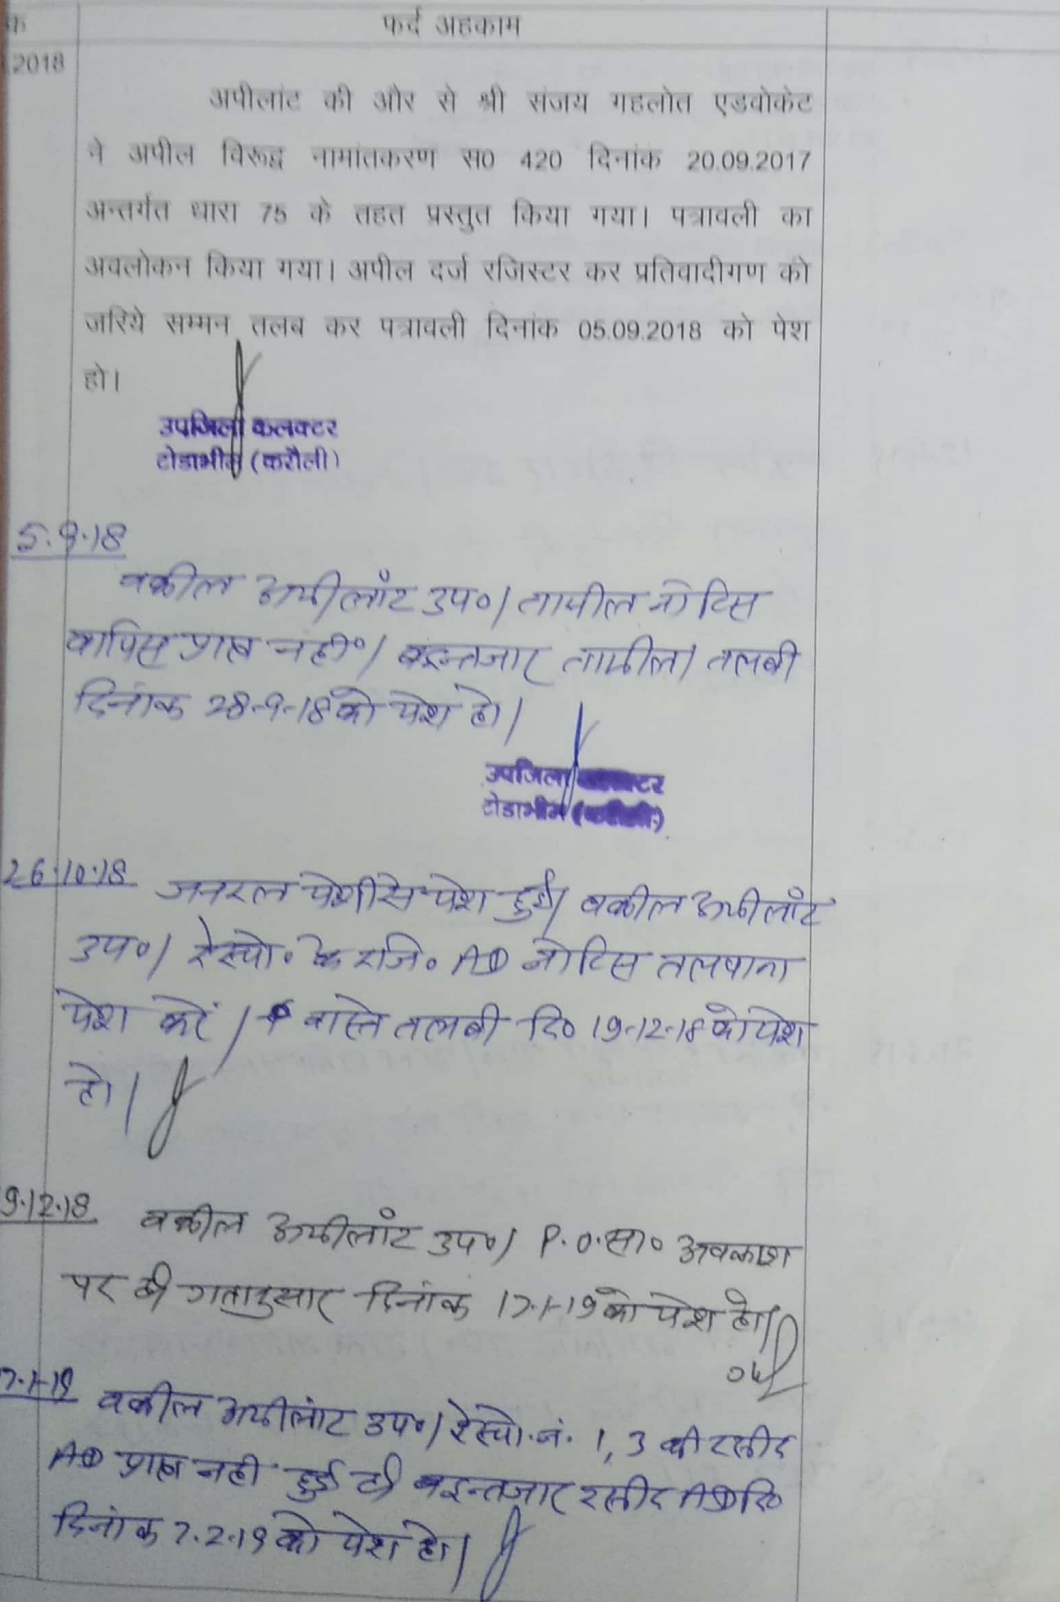 क
फर्द अहकाम
.2018
अपीलांट की और से श्री संजय गहलोत एडवोकेट
ने अपील विरूद्व नामांतकरण स0 420 दिनांक 20.09.2017
अन्तर्गत धारा 75 के तहत प्रस्तुत किया गया। पत्रावली का
अवलोकन किया गया। अपील दर्ज रजिस्टर कर प्रतिवादीगण को
जरिये सम्मन तलब कर पत्रावली दिनांक 05.09.2018 को पेश
हो।
उपजिला कलक्टर
टोडाभीम (करौली)
5.9.18
वकील अपीलाँट उप०/ तामील नोटिस
वापिस प्राप्त नहीं०/ बइन्तजार तामील/ तलबी
दिनांक 28-9-18 को पेश हो।
उपजिला कलक्टर
टोडाभीम (करौली)
26.10.18 जनरल पेशी से पेश हुई/ वकील अपीलाँट
उप०/ रेस्पो. के रजि. AD नोटिस तलवाना
पेश करें / वास्ते तलबी दि० 19-12-18 को पेश
हो।
9.12.18 वकील अपीलाँट उप०/ P.O.सा० अवकाश
पर है गतानुसार दिनांक 17-1-19 को पेश हो।
7-1-19 वकील अपीलांट उप०/ रेस्पो. नं. 1, 3 की रसीद
AD प्राप्त नहीं हुई है बइन्तजार रसीद AD
दिनांक 7.2.19 को पेश हो।